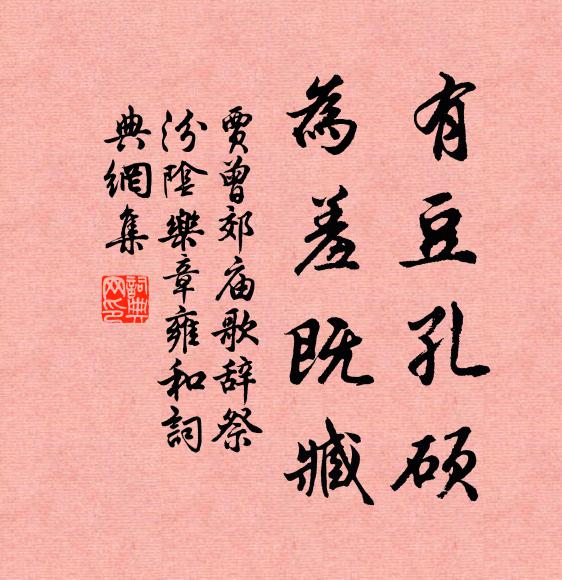 有豆孔硕
為羞既臧
賈曾郊庙歌辞祭
汾陰樂章雍和詞
典網集
詞典
网印